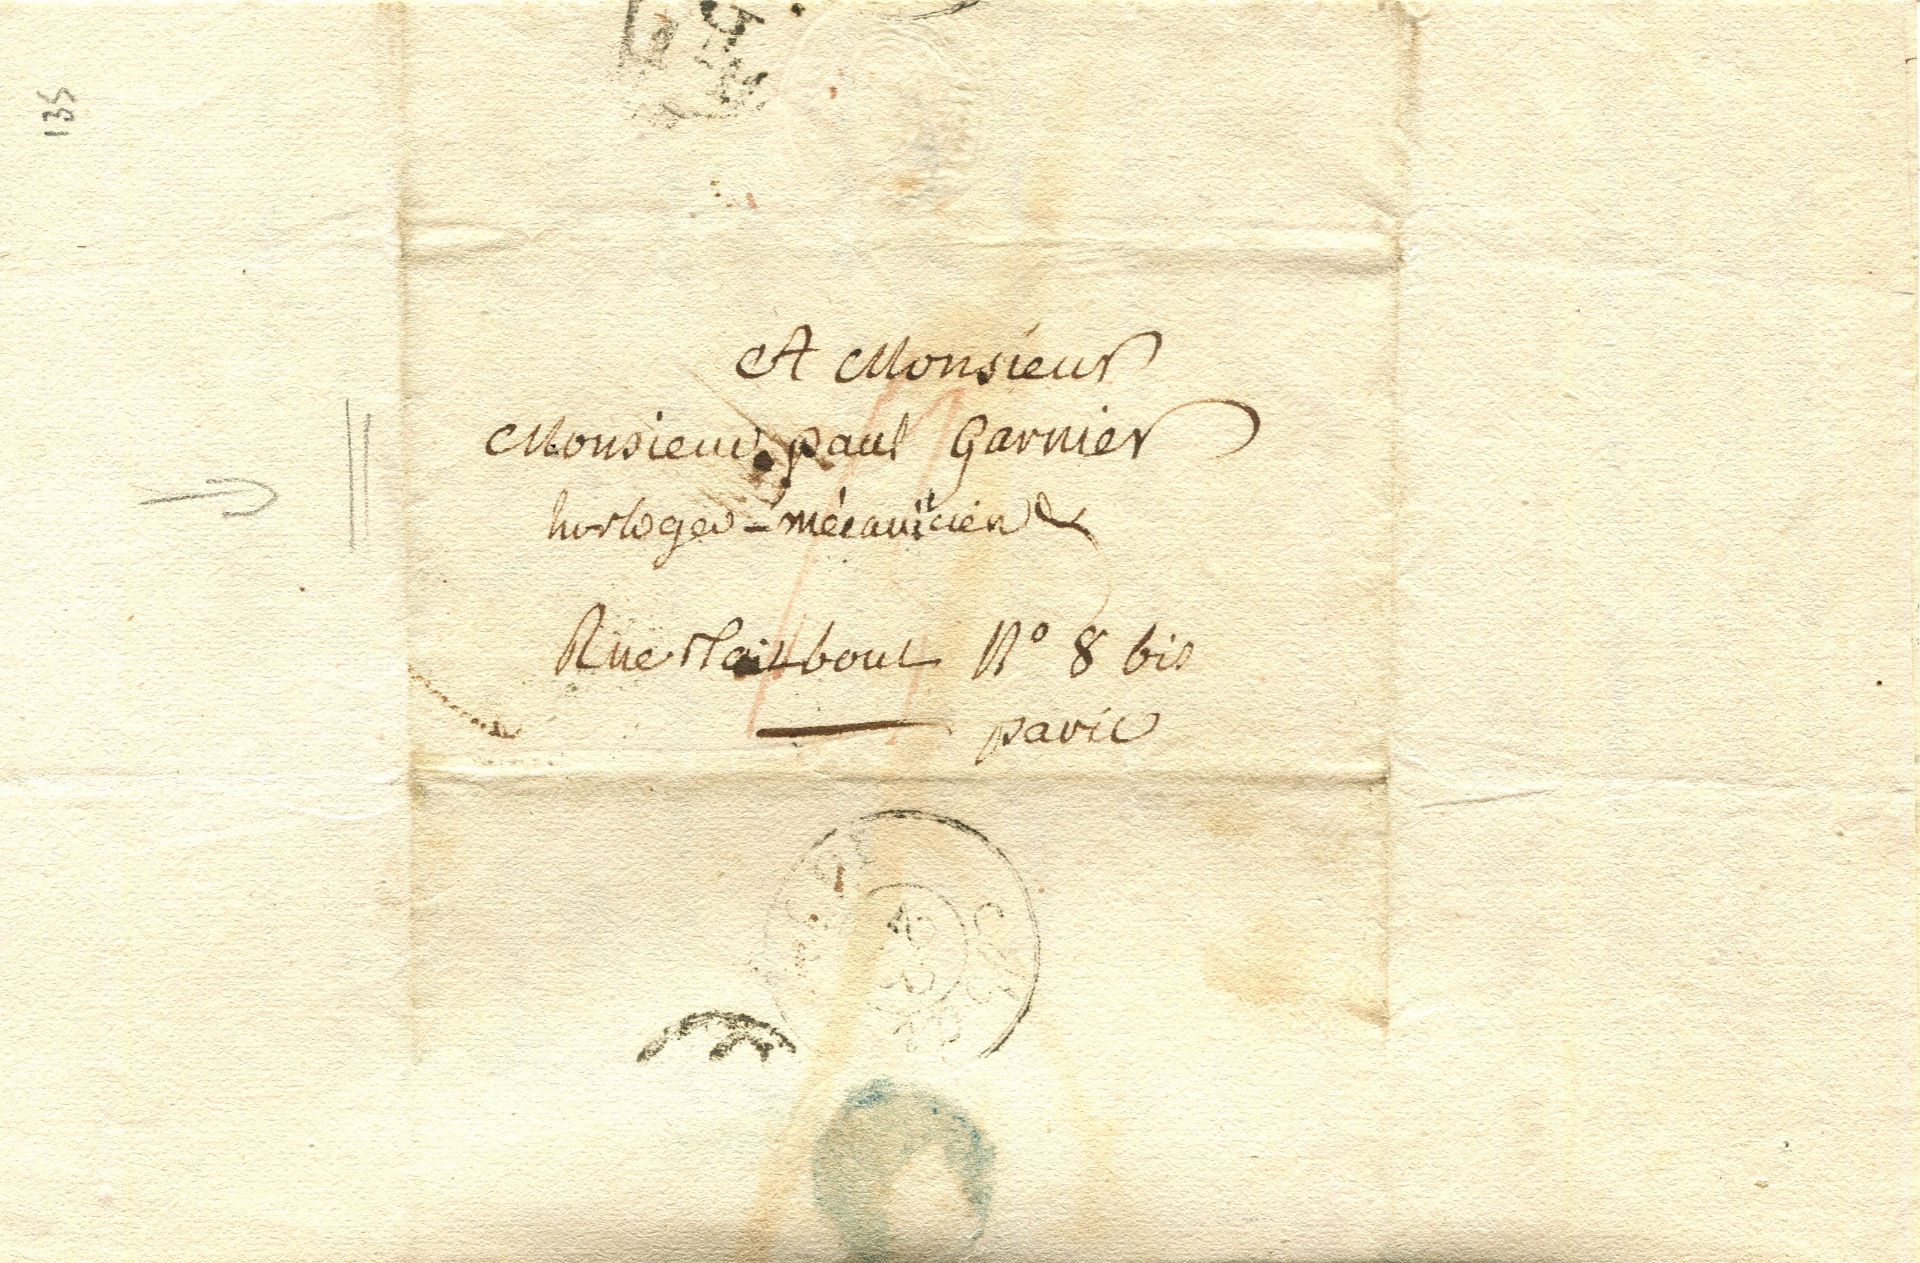 135
A Monsieur
Monsieur paul Garnier
horloger - mécanicien
Rue Taitbout N° 8 bis
paris